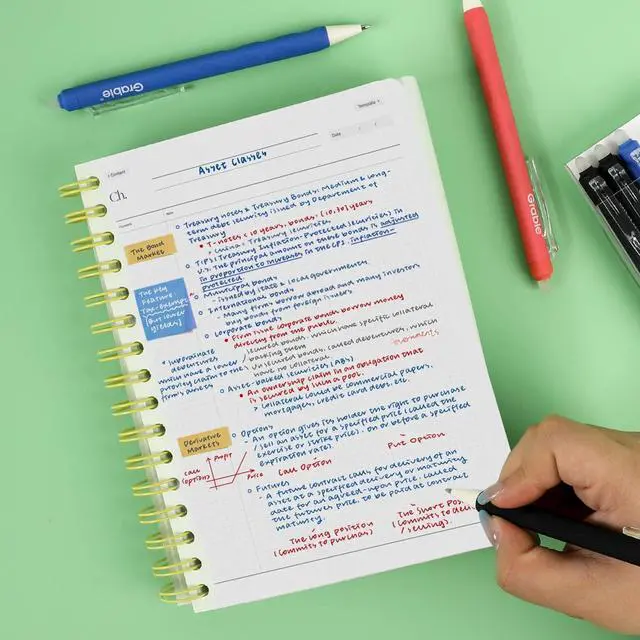 Grable
Grable
Template
< Content
Asset Classes
Date
Ch.
Treasury notes & Treasury Bonds: Medium & long-
term debt security issued by Department of
Treasury
T-notes < 10 years, bonds: (10, 30) years
Treasury securities
TIPS (Treasury Inflation-Protected Securities) in
U.S. The principal amount on these bonds is adjusted
in proportion to increases in the CPI. inflation-
protected
The Bond
Market
Municipal bonds
- issued by state & local governments
International bonds
- Many firms borrow abroad and many investors
buy bonds from foreign issuers
The key
Feature:
Tax-exempt
(But lower
yields)
Corporate bonds
Firms issue corporate bonds borrow money
directly from the public.
secured bonds, which have specific collateral
backing them
Unsecured bonds, called debentures, which
have no collateral.
subordinate
debentures,
which have a lower
priority claim to the
firm's assets
Asset-backed securities (ABS)
An ownership claim in an obligation that
is secured by such a pool.
> Collateral could be commercial papers,
mortgages, credit card debt, etc.
Derivative
Markets
Options
- An option gives its holder the right to purchase
/ sell an asset for a specified price (called the
exercise or strike price), on or before a specified
expiration date.
Call Option
Put Option
Call
(option)
Profit
Price
Futures
- A future contract calls for delivery of an
asset at a specified delivery or maturity
date for an agreed-upon price, called
the futures price, to be paid at contract
maturity.
The long position
(commits to purchas)
The short pos
(commits to deli
/ selling).